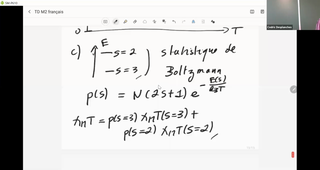 TG M2 français
0 1 T
c) E
S=2
S=3
statistique de
Boltzmann
p(s) = N(2s+1) e^{-E(s)/k_BT}
χ_M T = p(s=3) χ_M T(s=3) +
p(s=2) χ_M T(s=2)